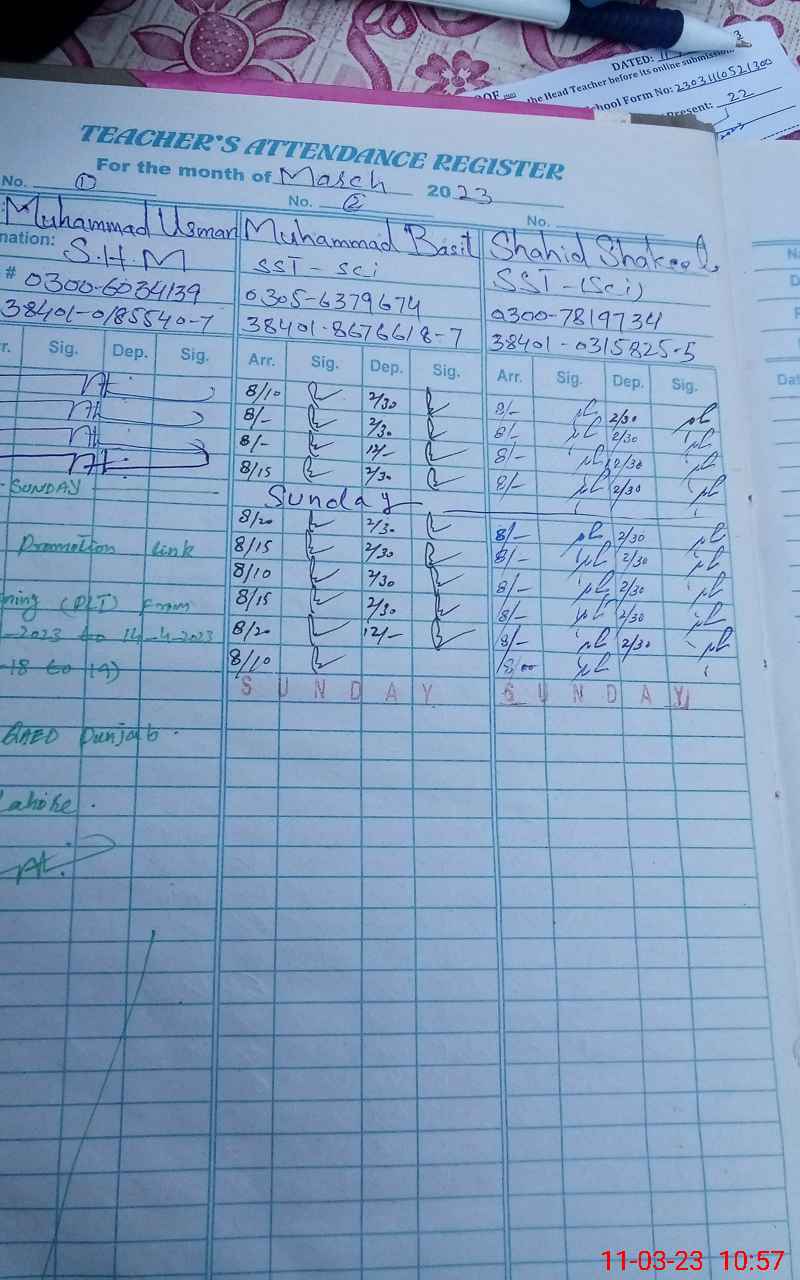 DATED: 11
the Head Teacher before its online submission
School Form No: 2303410521300
Present: 22
TEACHER'S ATTENDANCE REGISTER
For the month of March 2023
No. 1 No. 2 No.
Muhammad Usman Muhammad Basit Shahid Shakeel
nation: S.H.M SST-sci SST-(Sci)
# 0300-6034139 0305-6379674 0300-7819734
38401-0185540-7 38401-8676618-7 38401-0315825-5
r. Sig. Dep. Sig. Arr. Sig. Dep. Sig. Arr. Sig. Dep. Sig.
8/10 2/30 8/- 2/30
8/- 2/30 8/- 2/30
8/- 12/- 8/- 2/30
8/15 2/30 8/- 2/30
SUNDAY Sunday
8/20 2/30 8/- 2/30
Promotion link 8/15 2/30 8/- 2/30
8/10 2/30 8/- 2/30
ning (PLT) from 8/15 2/30 8/- 2/30
-2023 to 14-4-2023 8/20 12/- 8/- 2/30
-18 to 19) 8/10 8/00
SUNDAY SUNDAY
QAED Punjab.
Lahore.
11-03-23 10:57